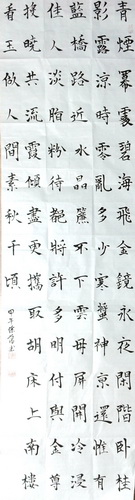 青煙冪處碧海飛金鏡永夜閒階臥桂
影露涼時零亂多少寒螿神京遠惟有
藍橋路近水晶簾不下雲母屏開冷浸
佳人淡脂粉待都將許多明付與金尊
投曉共流霞傾盡更攜取胡床上南樓
看玉做人間素秋千頃
甲午